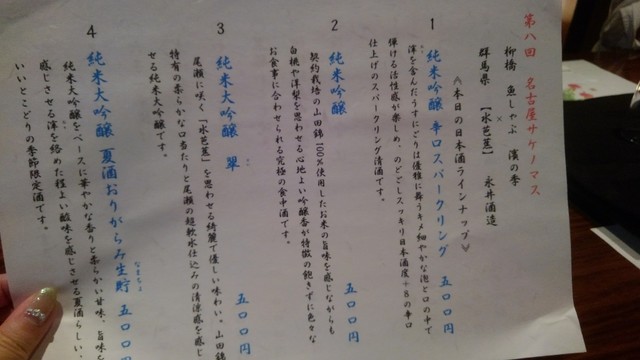 第八回　名古屋サケノマス
柳橋　魚しゃぶ　濱の季
群馬県　【水芭蕉】　永井酒造
《本日の日本酒ラインナップ》
1　純米吟醸　辛口スパークリング　五〇〇円
滓を含んだうすにごりは優雅に舞うキメ細やかな泡と口の中で
弾ける活性感が楽しめ、のどごしスッキリ日本酒度＋8の辛口
仕上げのスパークリング清酒です。
2　純米吟醸　五〇〇円
契約栽培の山田錦100％使用したお米の旨味を感じながらも
白桃や洋梨を思わせる心地よい吟醸香が特徴の飽きずに色々な
お食事に合わせられる究極の食中酒です。
3　純米大吟醸　翠　五〇〇円
尾瀬に咲く「水芭蕉」を思わせる綺麗で優しい味わい。山田錦
特有の柔らかな口当たりと尾瀬の超軟水仕込みの清涼感を感じ
せる純米大吟醸です。
4　純米大吟醸　夏酒おりがらみ生貯　五〇〇円
なまちょ
純米大吟醸をベースに華やかな香りと柔らかい甘味、旨味を
感じさせる滓を絡めた程よい酸味を感じさせる夏酒らしい、
いいとこどりの季節限定酒です。